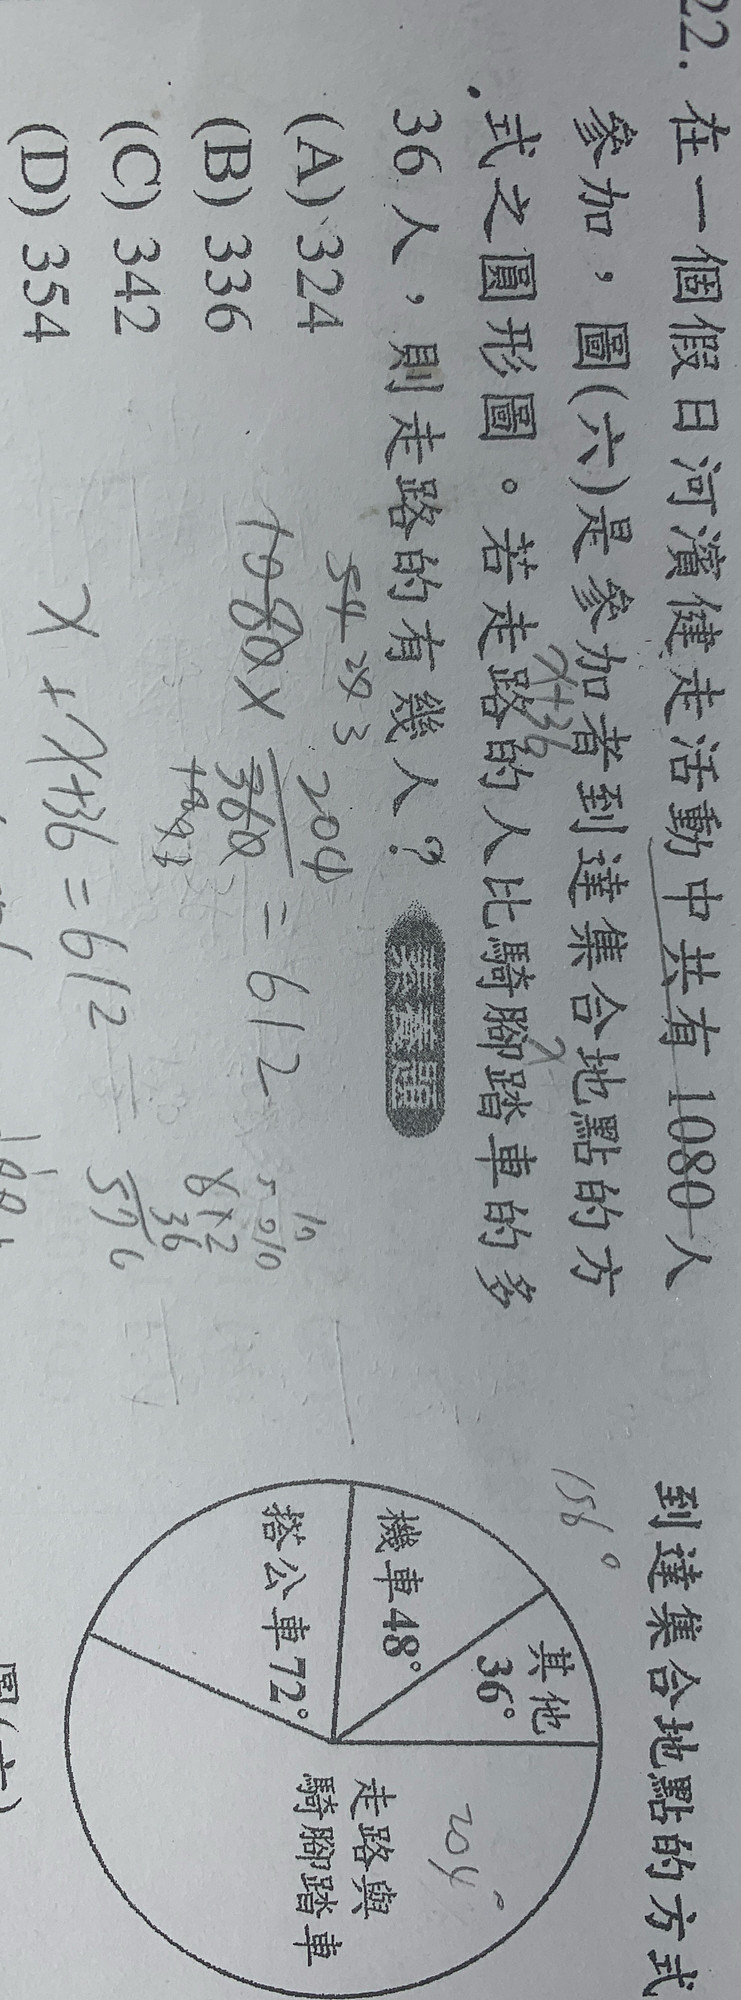 22. 在一個假日河濱健走活動中共有1080人
參加，圖(六)是參加者到達集合地點的方
式之圓形圖。若走路的人比騎腳踏車的多
36人，則走路的有幾人？ 素養題
(A) 324
(B) 336
(C) 342
(D) 354
x+36
x
54 28 3
1080 × 204/360 = 612
x + x+36 = 612
612
36
576
到達集合地點的方式
156°
其他
36°
機車48°
搭公車72°
204°
走路與
騎腳踏車